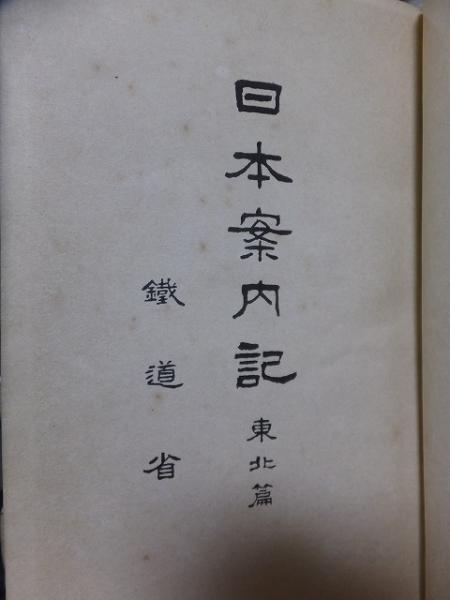 日本案内記 東北篇
鐵道省